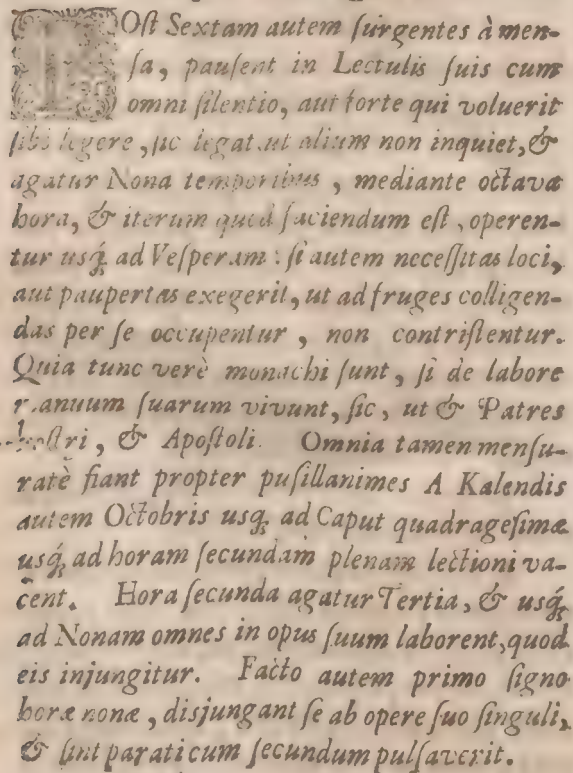 POſt Sextam autem ſurgentes à men-
ſa, pauſent in Lectulis ſuis cum
omni ſilentio, aut forte qui voluerit
ſibi legere, ſic legat ut alium non inquiet, &
agatur Nona temporibus, mediante octava
hora, & iterum quod faciendum eſt, operen-
tur usq; ad Veſperam: ſi autem neceſſitas loci,
aut paupertas exegerit, ut ad fruges colligen-
das per ſe occupentur, non contriſtentur.
Quia tunc verè monachi ſunt, ſi de labore
manuum ſuarum vivunt, ſic, ut & Patres
noſtri, & Apoſtoli. Omnia tamen menſu-
ratè fiant propter puſillanimes A Kalendis
autem Octobris usq; ad Caput quadrageſimæ
usq; ad horam ſecundam plenam lectioni va-
cent. Hora ſecunda agatur Tertia, & usq;
ad Nonam omnes in opus ſuum laborent, quod
eis injungitur. Facto autem primo ſigno
horæ nonæ, disjungant ſe ab opere ſuo ſinguli,
& ſint parati cum ſecundum pulſaverit.